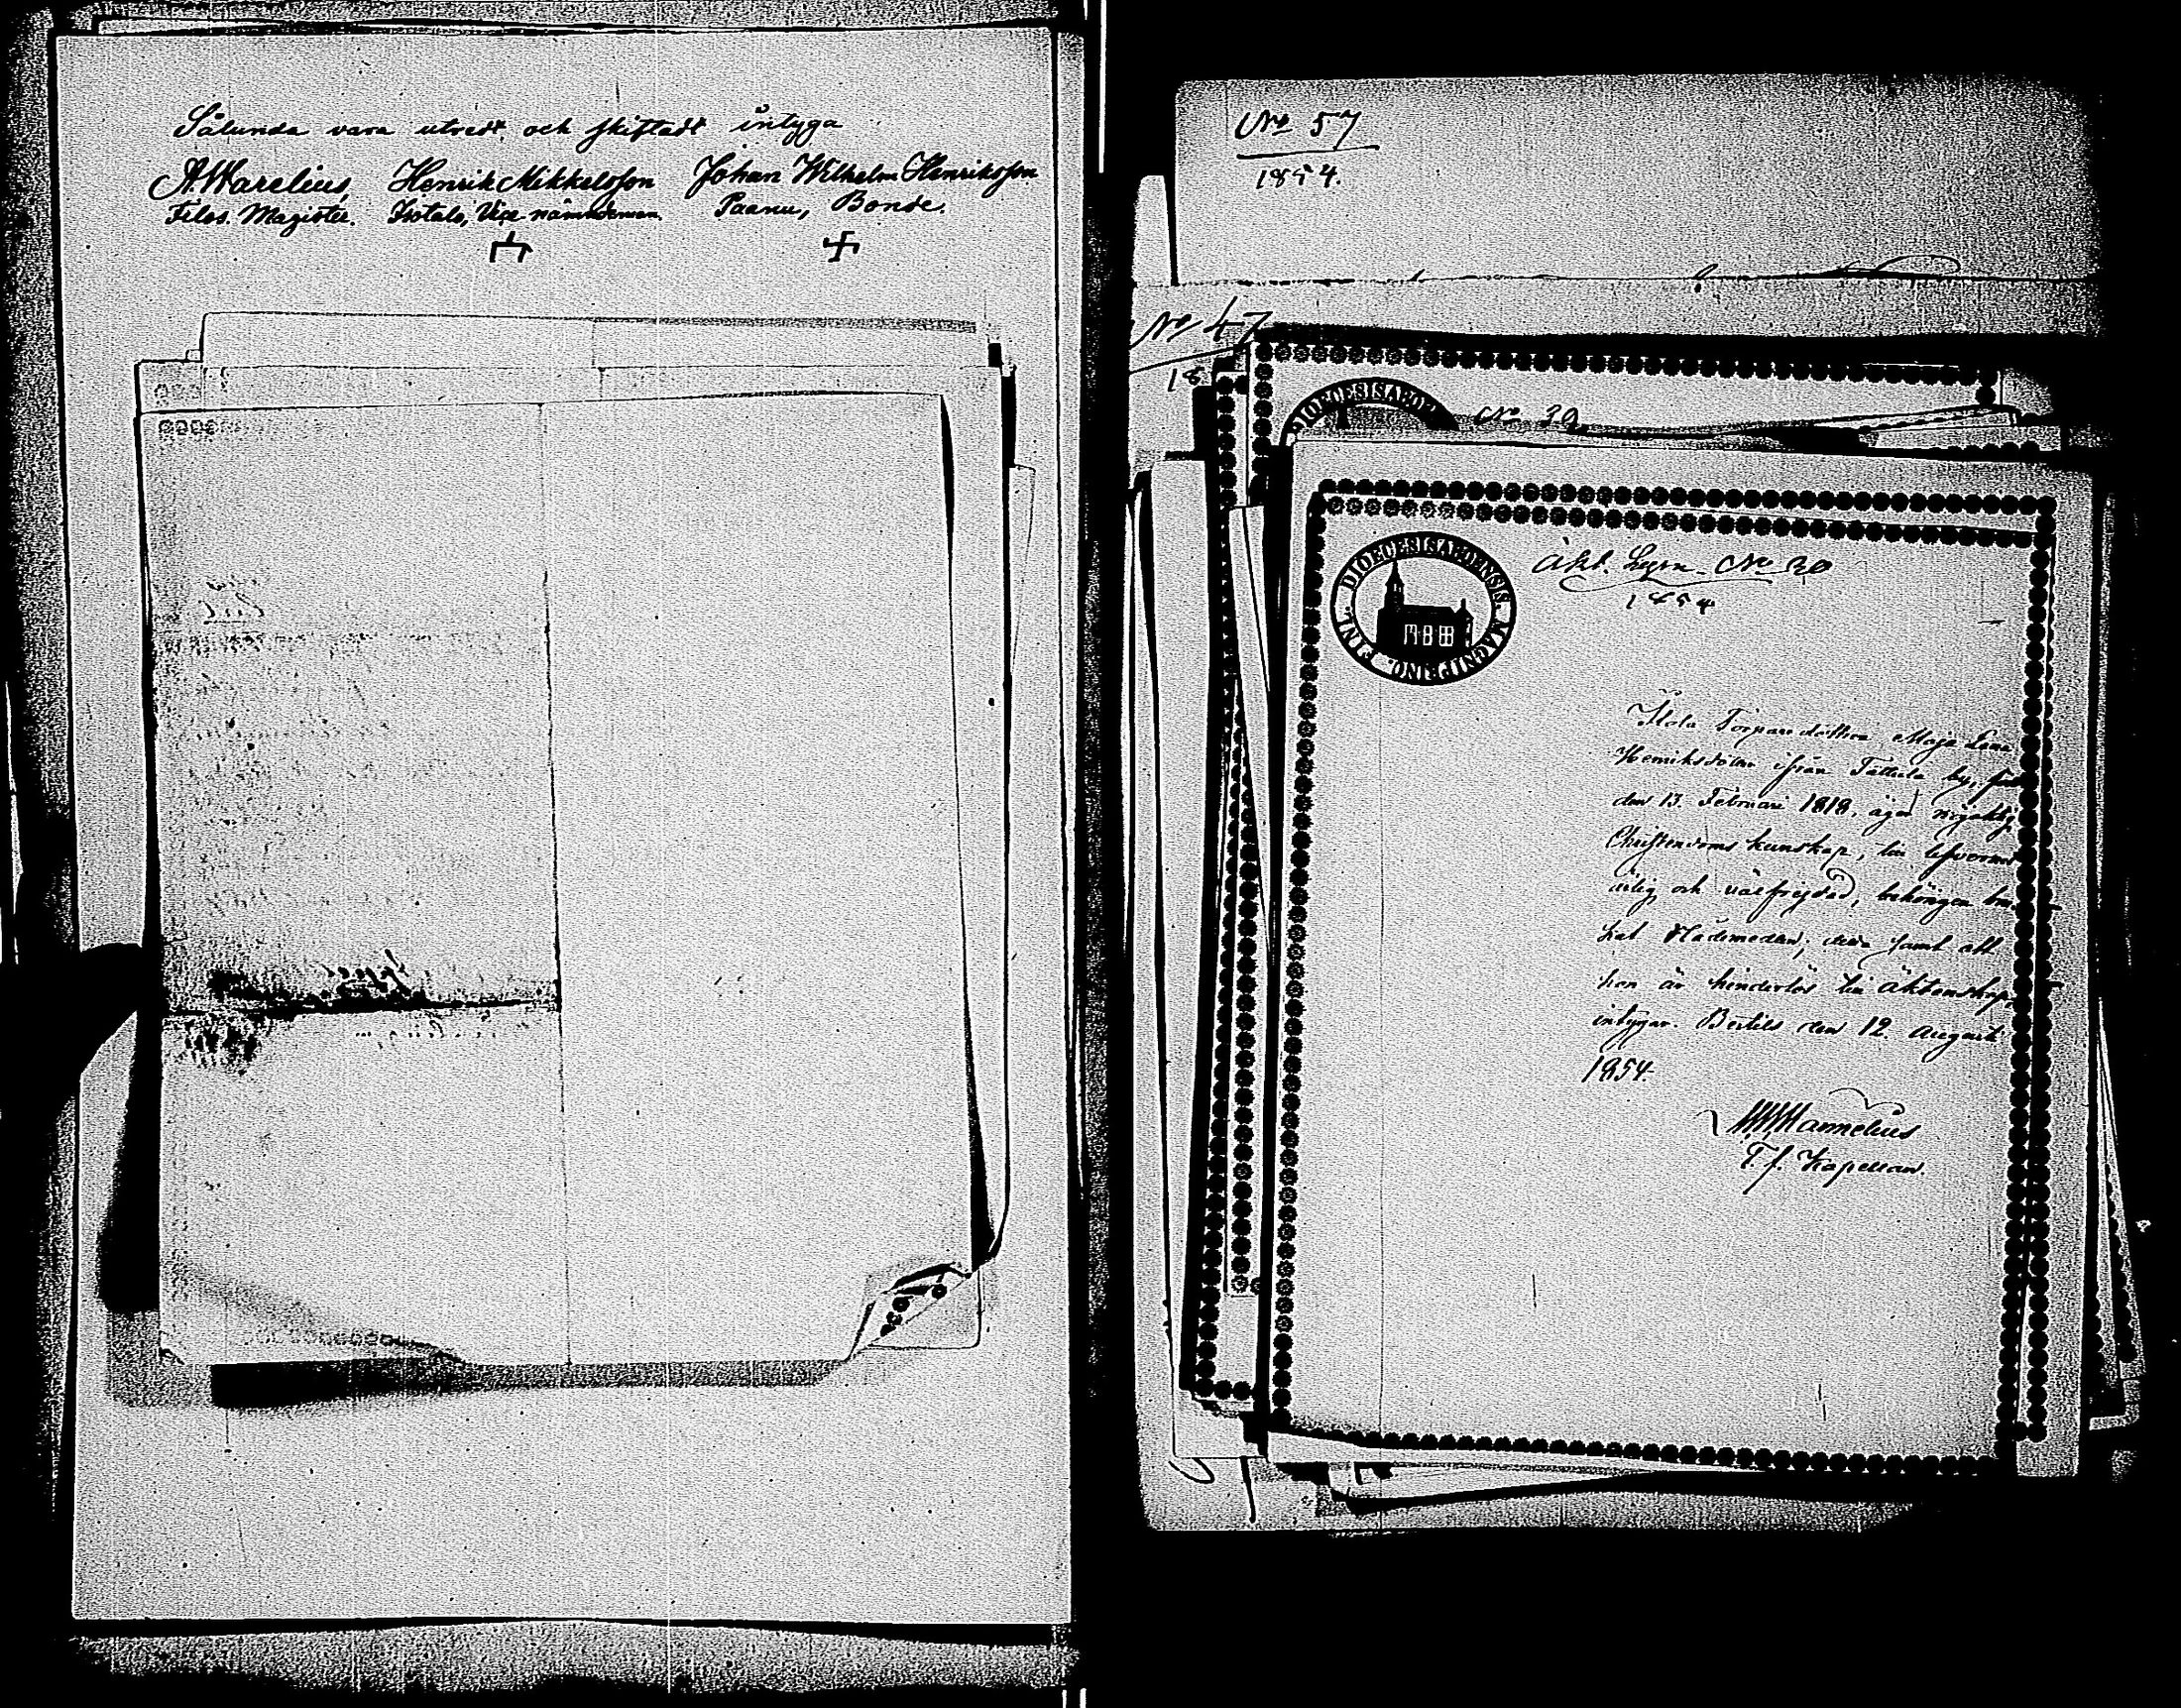 Sålunda vara utredt och skiftadt intyga
A. Warelius, Henrik Mikkelsson Johan Wilhelm Henriksson
Filos. Magister. Isotalo, Vice nämndeman. Paanu, Bonde.
No 57
1854.
No 47
18
DIOECESIS ABOE
No 30
DIOECESIS ABOENSIS. MAGNI PRINC. FINL.
Äkt. Lysn. No 30
1854
Torpare dottren Maja Lena
Henriksdotter ifrån Tattula by, född
den 13. Februari 1818, äger nöjaktig
Christendoms kunskap, till
ärlig och välfrejdad, behörigen bru-
kat Nådemedlen; detta samt att
hon är hinderlös till äktenskap
intygar. Bertils den 12. Augusti
1854.
Mannelius
T. f. Kapellan.